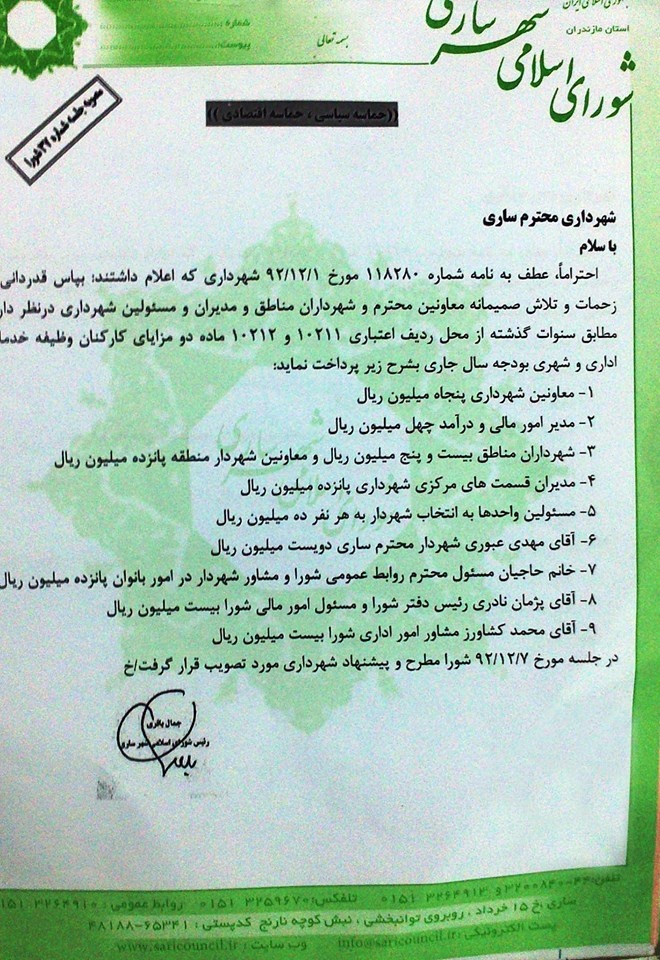 جمهوری اسلامی ایران
استان مازندران
شورای اسلامی شهر ساری
بسمه تعالی
شماره :
پیوست :
مصوبه جلسه شماره ۳۲ شورا
((حماسه سیاسی ، حماسه اقتصادی ))
شهرداری محترم ساری
با سلام
احتراماً، عطف به نامه شماره ۱۱۸۲۸۰ مورخ ۹۲/۱۲/۱ شهرداری که اعلام داشتند؛ بپاس قدردانی
زحمات و تلاش صمیمانه معاونین محترم و شهرداران مناطق و مدیران و مسئولین شهرداری درنظر دار
مطابق سنوات گذشته از محل ردیف اعتباری ۱۰۲۱۱ و ۱۰۲۱۲ ماده دو مزایای کارکنان وظیفه خدما
اداری و شهری بودجه سال جاری بشرح زیر پرداخت نماید:
۱- معاونین شهرداری پنجاه میلیون ریال
۲- مدیر امور مالی و درآمد چهل میلیون ریال
۳- شهرداران مناطق بیست و پنج میلیون ریال و معاونین شهردار منطقه پانزده میلیون ریال
۴- مدیران قسمت های مرکزی شهرداری پانزده میلیون ریال
۵- مسئولین واحدها به انتخاب شهردار به هر نفر ده میلیون ریال
۶- آقای مهدی عبوری شهردار محترم ساری دویست میلیون ریال
۷- خانم حاجیان مسئول محترم روابط عمومی شورا و مشاور شهردار در امور بانوان پانزده میلیون ریال
۸- آقای پژمان نادری رئیس دفتر شورا و مسئول امور مالی شورا بیست میلیون ریال
۹- آقای محمد کشاورز مشاور امور اداری شورا بیست میلیون ریال
در جلسه مورخ ۹۲/۱۲/۷ شورا مطرح و پیشنهاد شهرداری مورد تصویب قرار گرفت/خ
جمال باقری
رئیس شورای اسلامی شهر ساری
تلفن: ۴۴-۳۲۰۰۸۴۰ و ۳۲۶۴۹۱۲ ۰۱۵۱ تلفکس: ۳۲۵۹۶۷۰ ۰۱۵۱ روابط عمومی : ۳۲۶۴۹۱۰ ۰۱۵۱
ساری ،خ ۱۵ خرداد ، روبروی توانبخشی ، نبش کوچه نارنج کدپستی : ۶۵۳۴۱-۴۸۱۸۸
پست الکترونیکی: info@saricouncil.ir وب سایت : www.saricouncil.ir